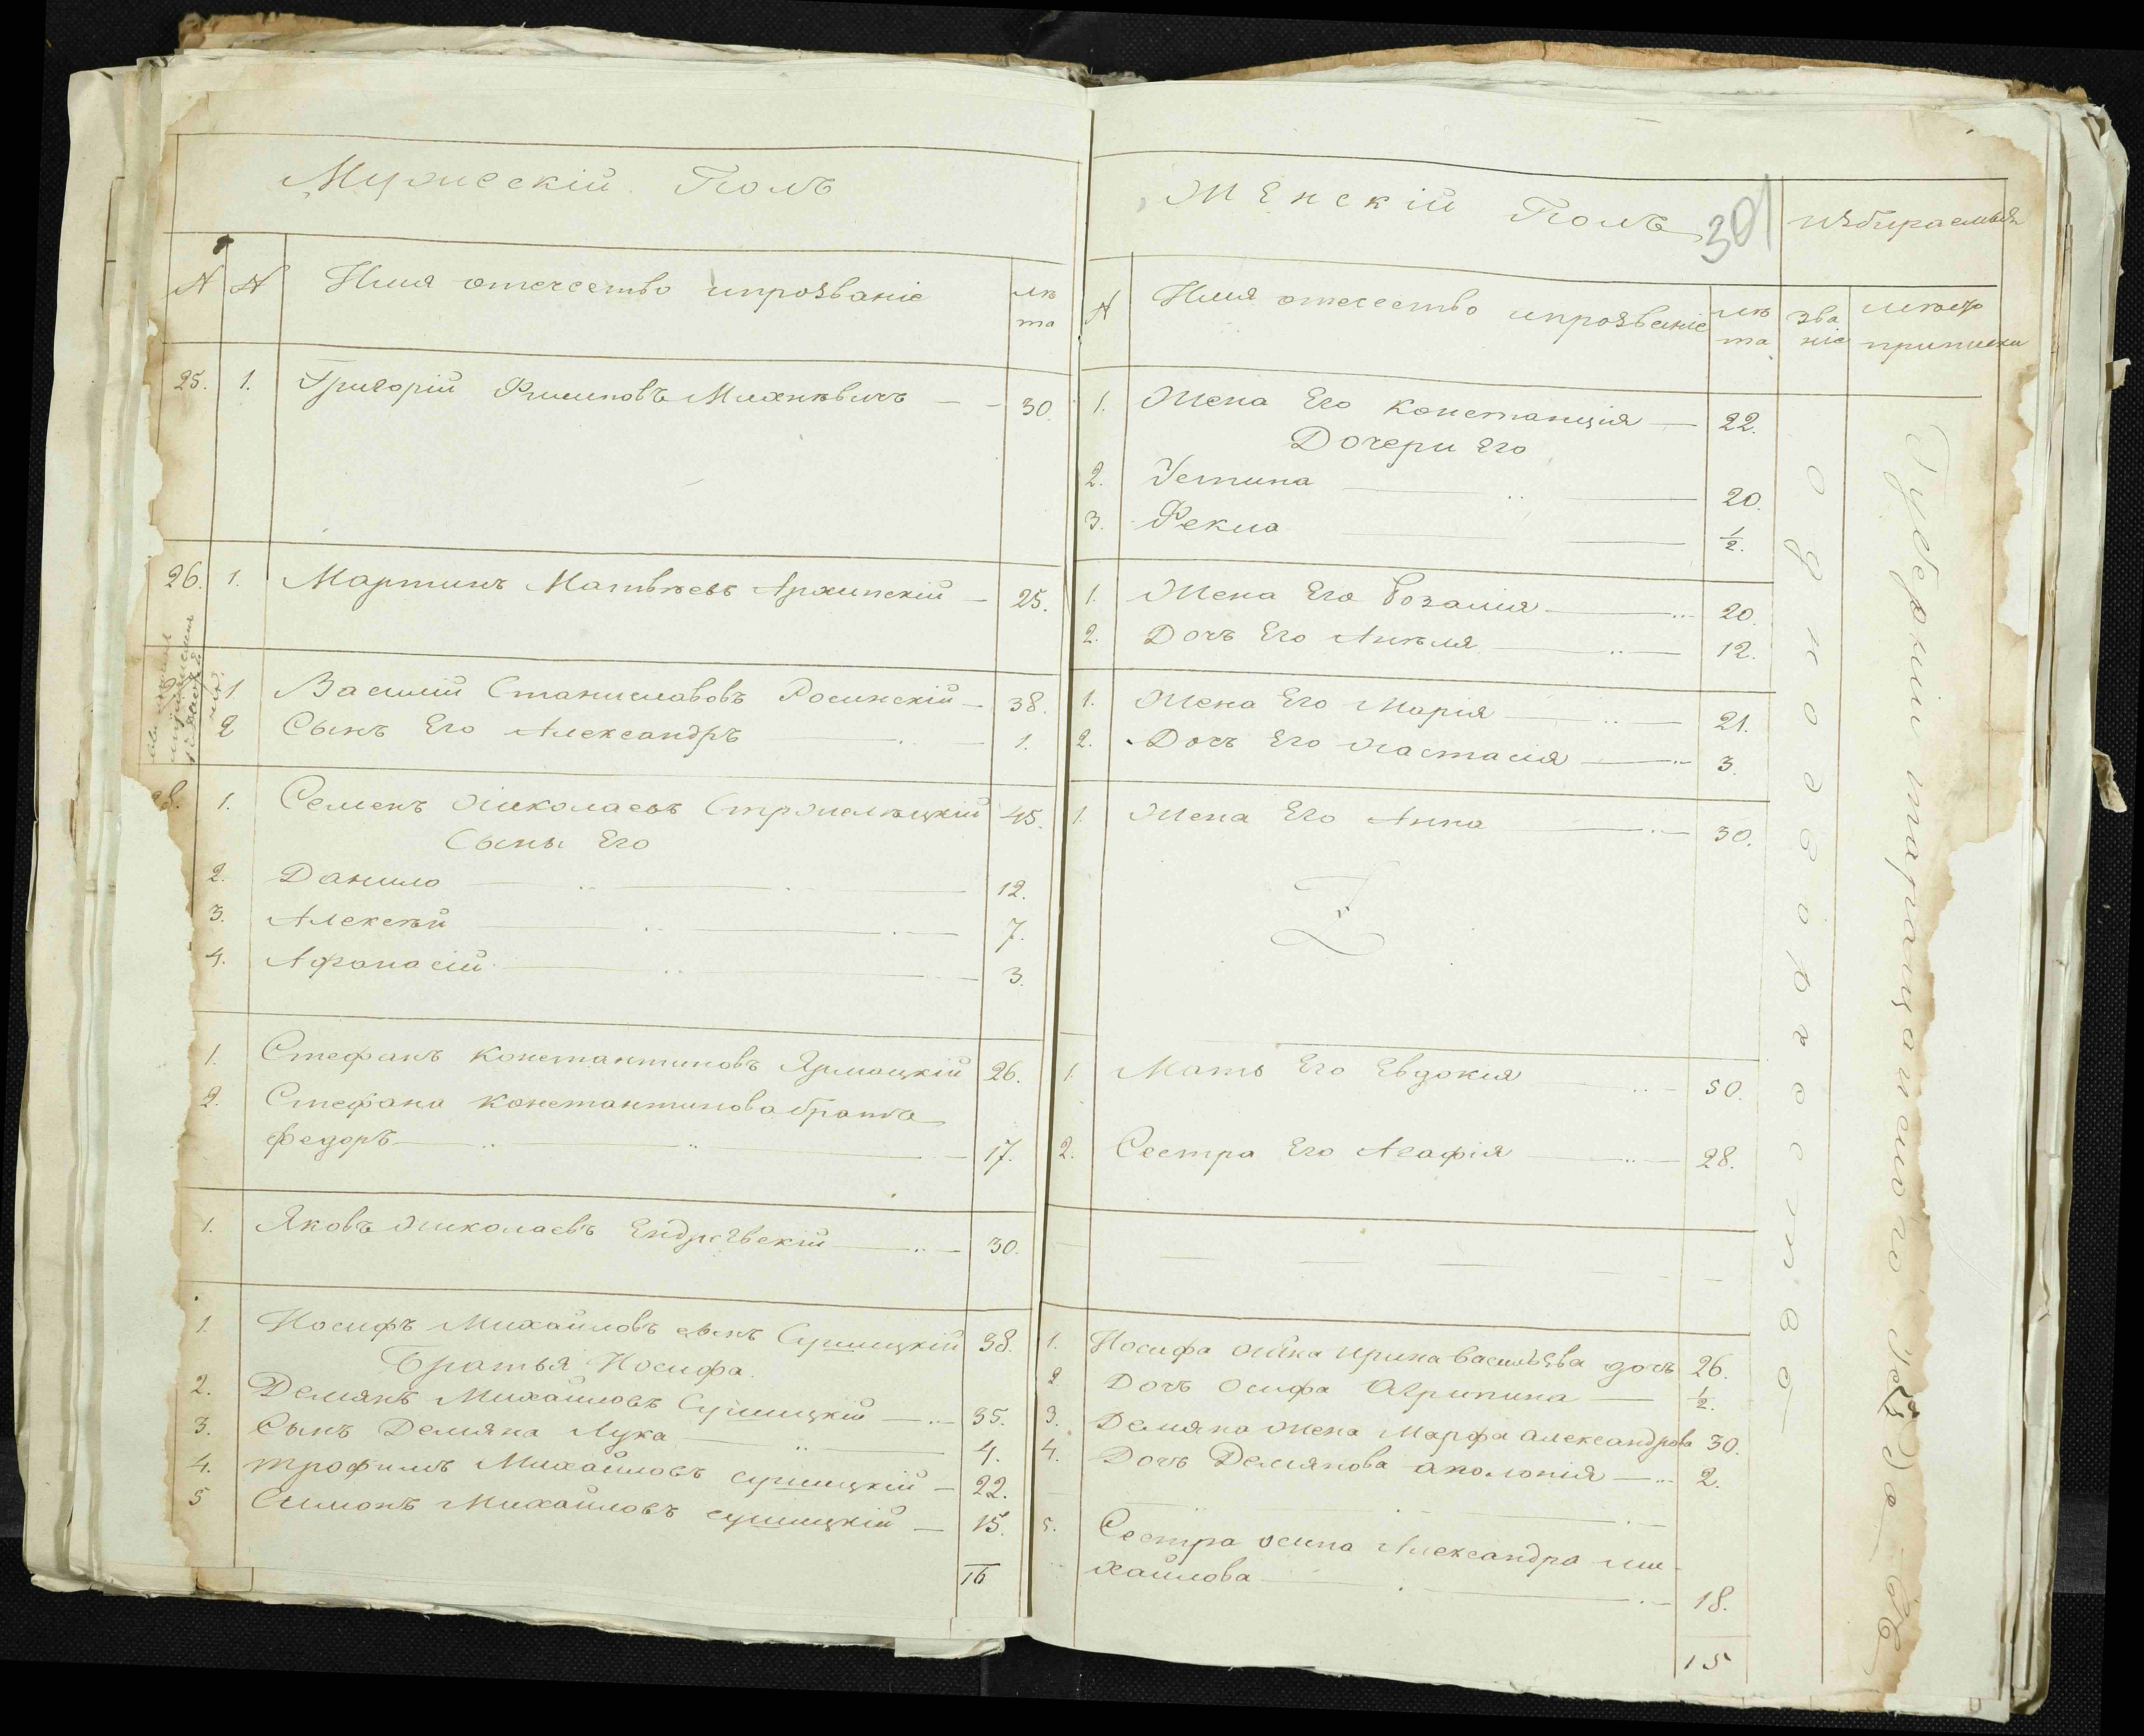 Мужескій Полъ
N N Имя отечество ипрозваніе лѣ
та
25. 1. Григорій Филиповъ Михнѣвичъ 30.
26. 1. Мартинъ Матвѣевъ Архипскій 25.
1. Василій Станиславовъ Росинскій 38.
2 Сынъ Его Александръ 1.
1. Семенъ Николаевъ 45.
Сыны Его
2. Данило 12.
3. Алексѣй 7.
4. Афанасій 3.
1. Стефанъ Константиновъ Ярмоцкій 26.
2. Стефана Константинова брата
Федоръ 17.
1. Яковъ Николаевъ 30.
1. Иосифъ Михайловъ сынъ Сушицкій 38.
Братья Иосифа.
2. Демянъ Михайловъ Сушицкій 35.
3. Сынъ Демяна Лука 4.
4. трофимъ Михайловъ сушицкій 22.
5 Симонъ Михайловъ сушицкій 15.
16
Женскій Полъ 301 избираемыя
N Имя отечество ипрозваніе лѣ
та зва
ніе мѣсто
приписки
1. Жена Его Констанція 22.
Дочери Его
2. Устина 20.
3. Фекла 1/2.
1. Жена Его Розалія 20.
2. Дочъ Его Анѣля 12.
1. Жена Его Марія 21.
2. Дочъ Его Настасія 3.
1. Жена Его Анна 30.
1. Мать Его Евдокия 50.
2. Сестра Его Агафія 28.
1. Иосифа жѣна ирина васильева дочъ 26.
2 Дочъ Осифа Агрипина 1/2.
3. Демяна жена Марфа александрова 30.
4. Дочъ Демянова аполонія 2.
5. Сестра осипа Александра ми-
хайлова 18.
15
однодворческое
Губерніи